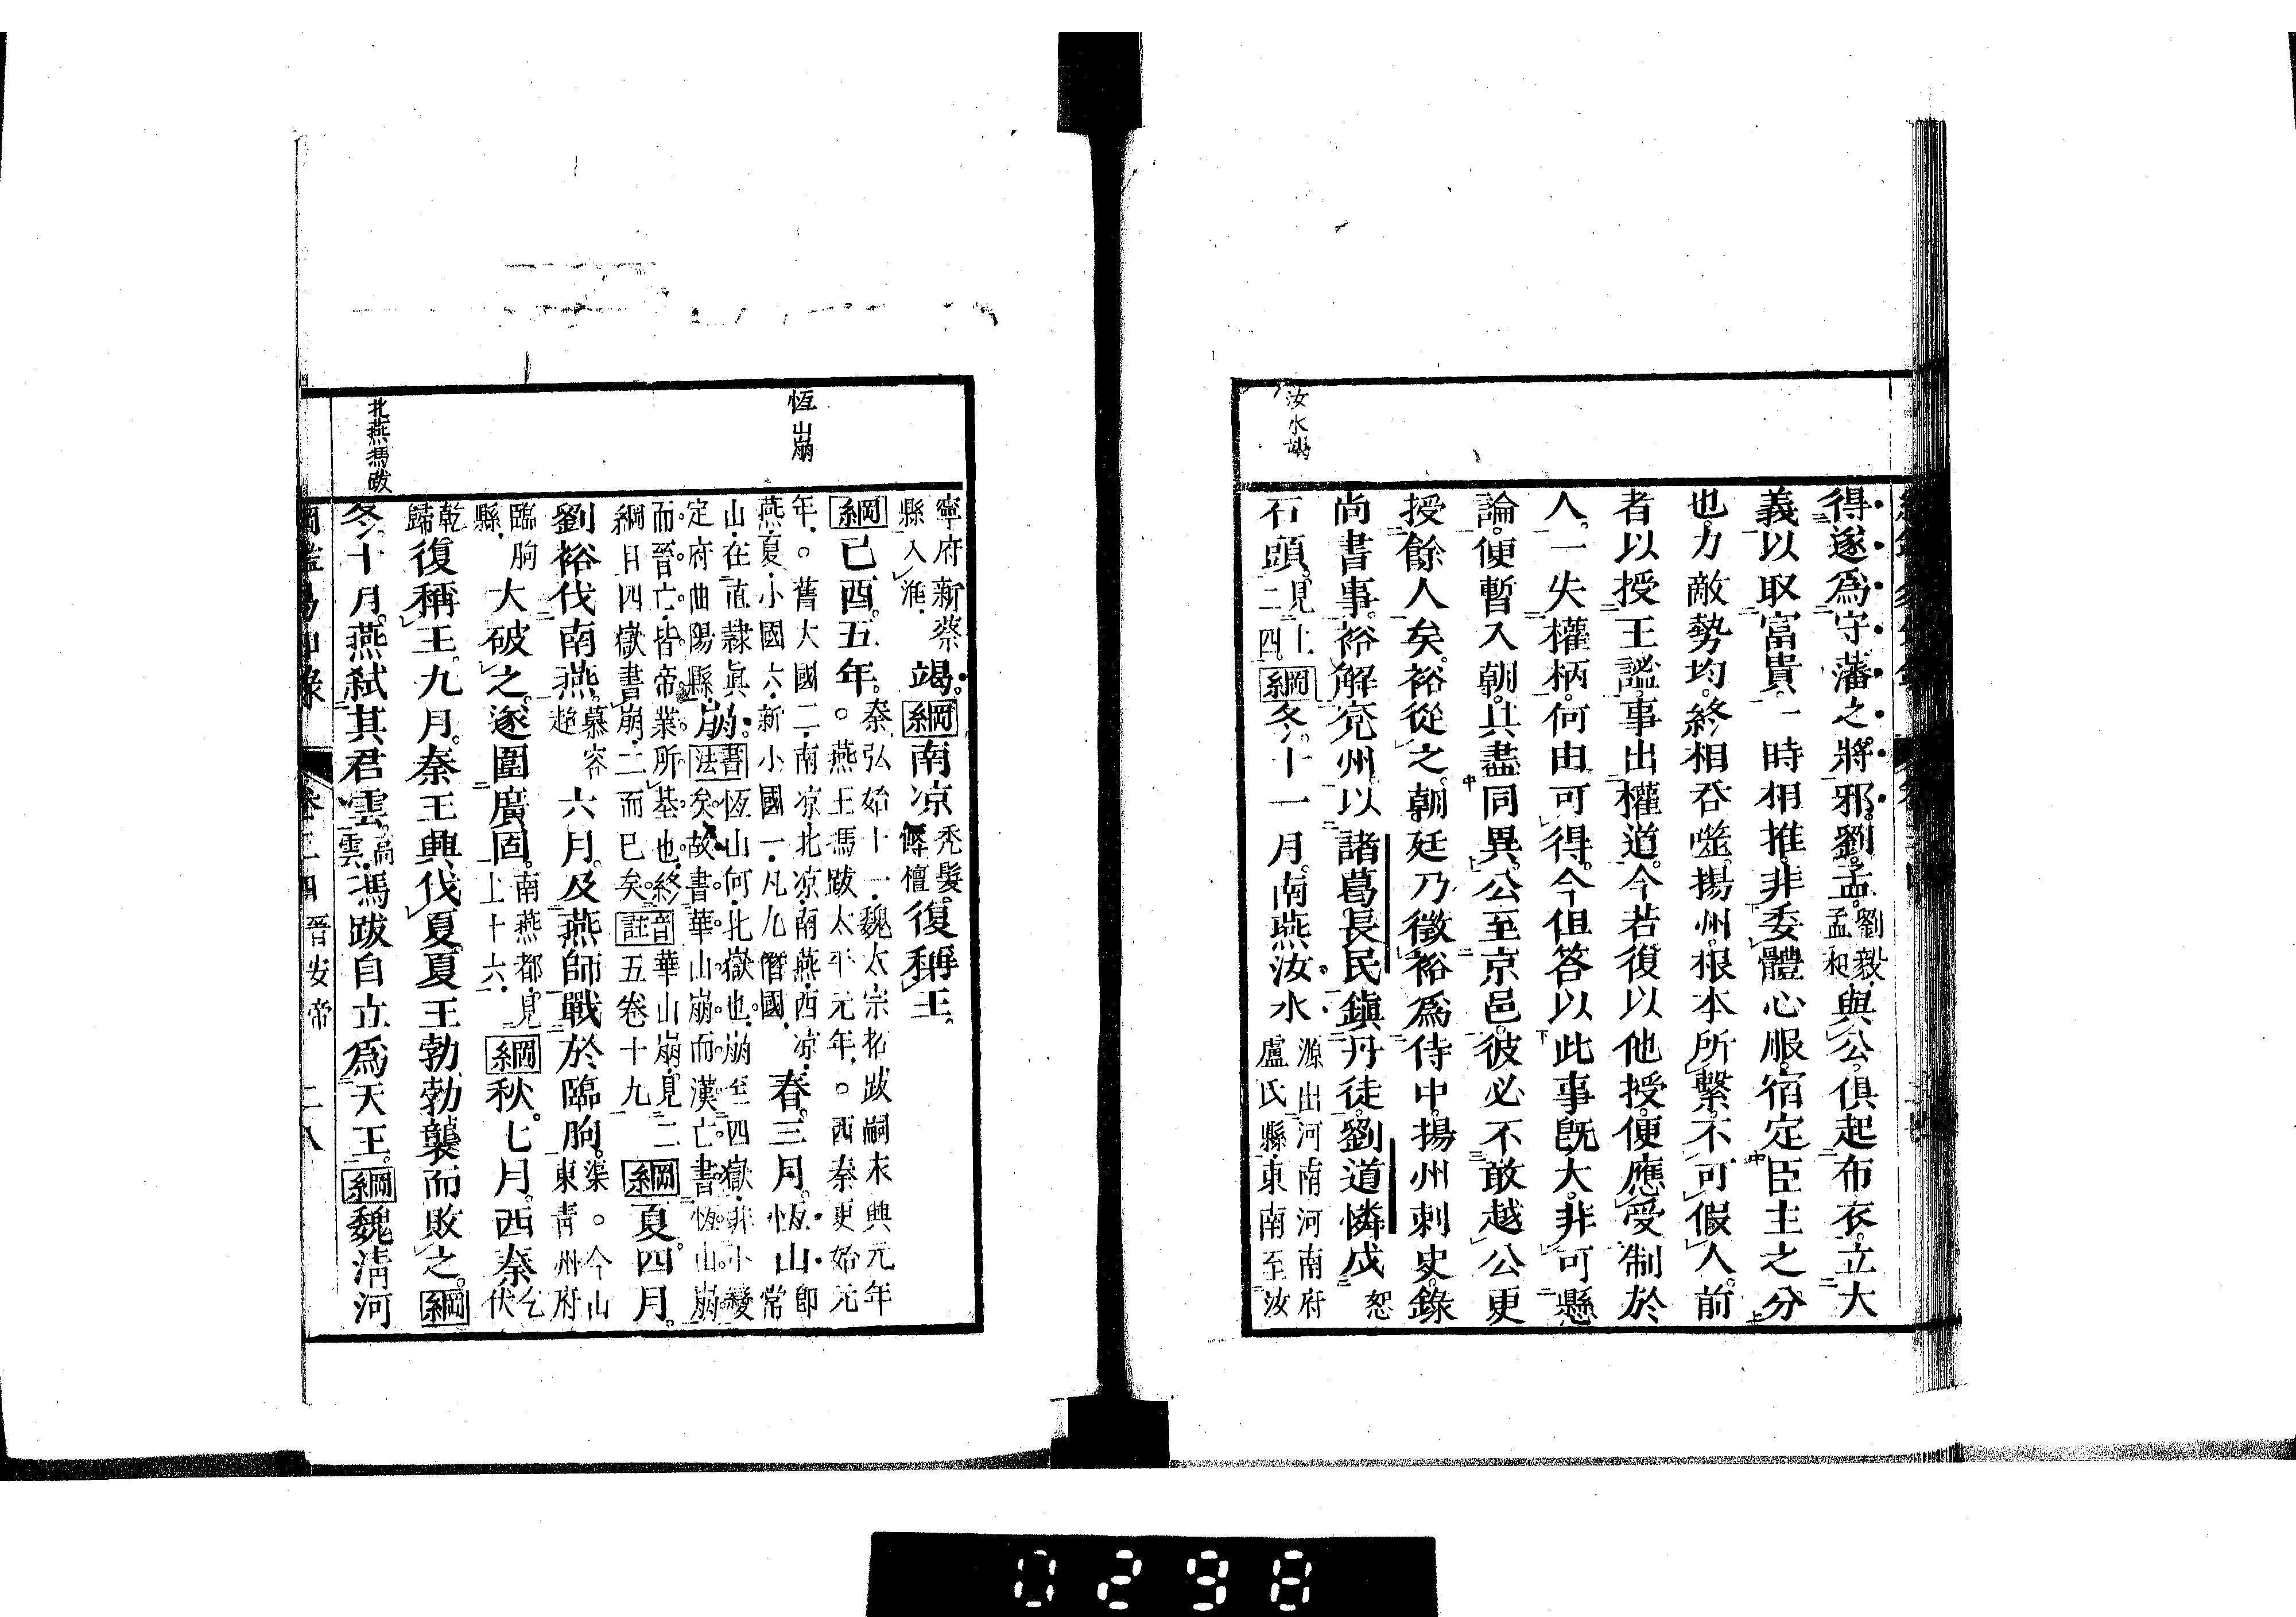 得遂爲守藩之將邪劉孟劉毅孟昶與公俱起布衣立大
義以取富貴一時相推非委體心服宿定臣主之分
也力敵勢均終相吞噬揚州根本所繫不可假人前
者以授王謐事出權道今若復以他授便應受制於
人一失權柄何由可得今但答以此事旣大非可懸
論便暫入朝共盡同異公至京邑彼必不敢越公更
授餘人矣裕從之朝廷乃徵裕爲侍中揚州刺史錄
尚書事裕解兗州以諸葛長民鎭丹徒劉道憐戍
石頭見上二四綱冬十一月南燕汝水源出河南河南府盧氏縣東南至汝
汝水竭
寧府新蔡縣入淮竭綱南凉禿髮傉檀復稱王
綱己酉五年秦弘始十一魏太宗拓跋嗣末興元年○燕王馮跋太平元年○西秦更始元
年○舊大國二南凉北凉南燕西凉燕夏小國六新小國一凡九僭國春三月恆山卽常
恆山崩
山在直隷眞定府曲陽縣崩書法恆山何北嶽也崩至四嶽非小變矣故書華山崩而漢亡書恆山崩
而晉亡皆帝業所基也終綱目四嶽書崩二而已矣音註華山崩見二五卷十九綱夏四月
劉裕伐南燕慕容超六月及燕師戰於臨朐渠○今山東靑州府
臨朐縣大破之遂圍廣固南燕都見上十六綱秋七月西秦乞伏
乾歸復稱王九月秦王興伐夏夏王勃勃襲而敗之綱
冬十月燕弑其君雲高雲馮跋自立爲天王綱魏淸河
北燕馮跋
晉安帝 二八
0298